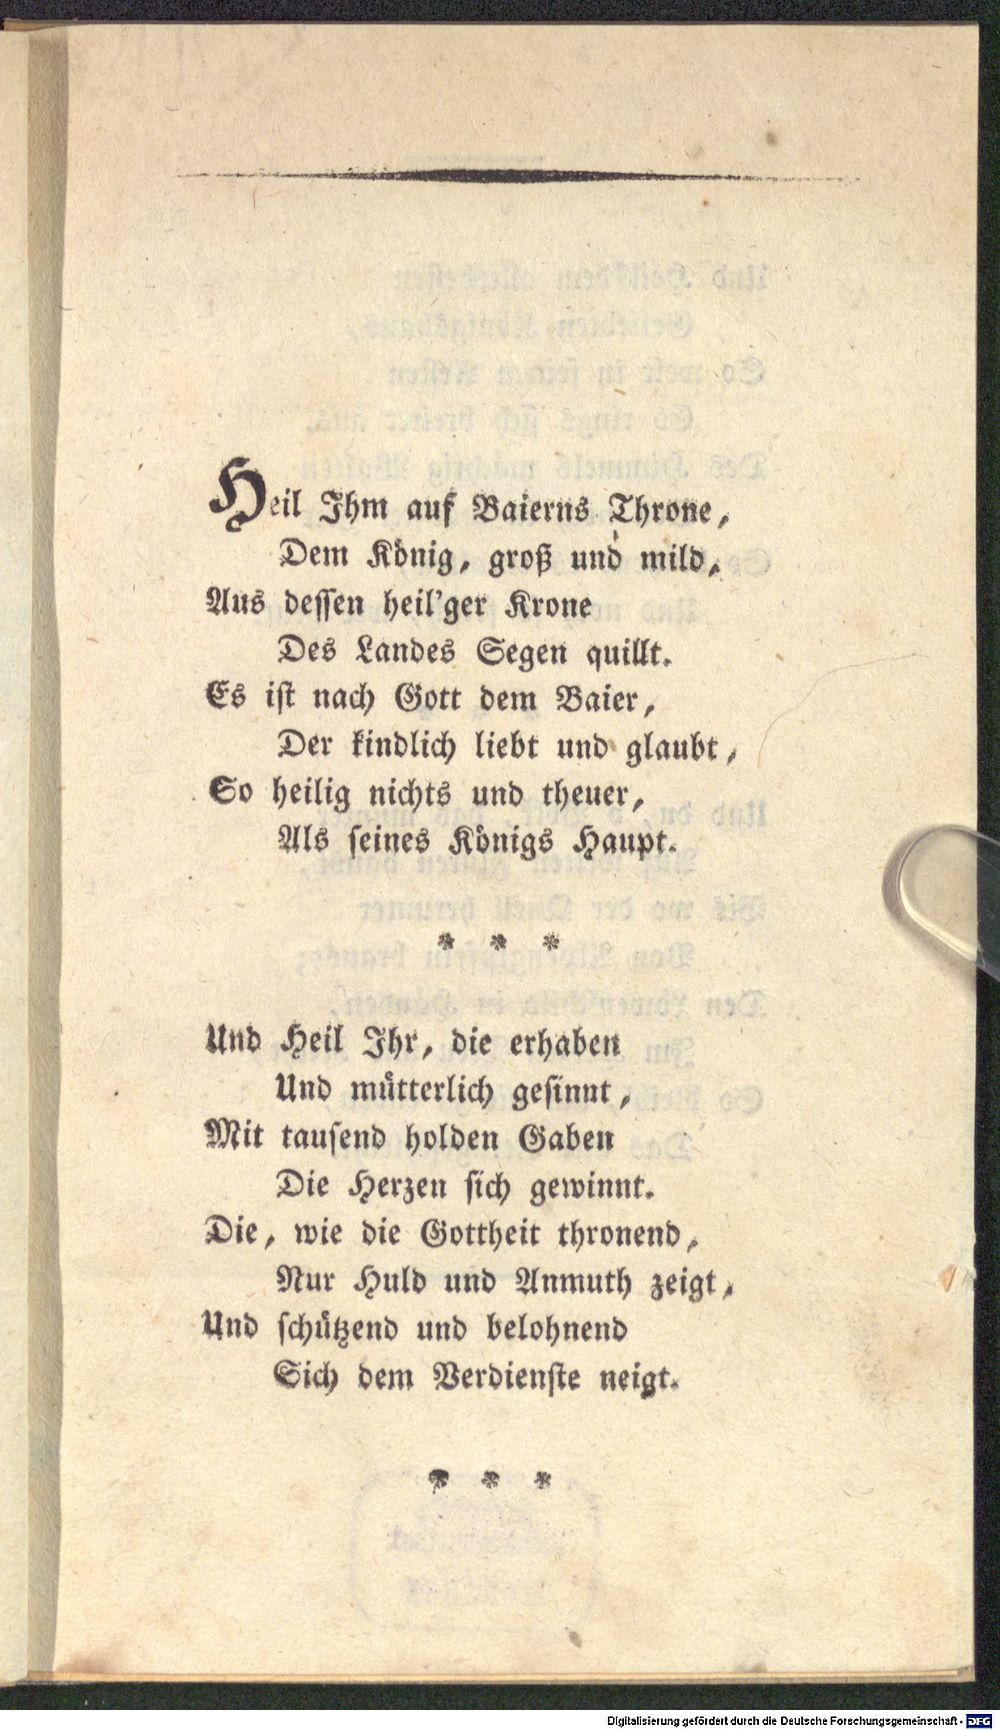 Heil Ihm auf Baierns Throne,
Dem König, groß und mild,
Aus dessen heil'ger Krone
Des Landes Segen quillt.
Es ist nach Gott dem Baier,
Der kindlich liebt und glaubt,
So heilig nichts und theuer,
Als seines Königs Haupt.
* * *
Und Heil Ihr, die erhaben
Und mütterlich gesinnt,
Mit tausend holden Gaben
Die Herzen sich gewinnt.
Die, wie die Gottheit thronend,
Nur Huld und Anmuth zeigt,
Und schützend und belohnend
Sich dem Verdienste neigt.
* * *
Digitalisierung gefördert durch die Deutsche Forschungsgemeinschaft - DFG